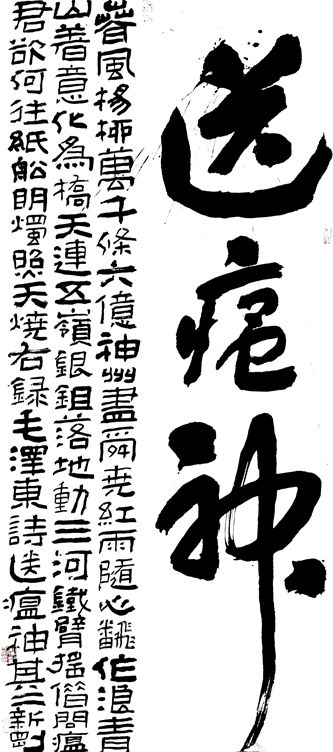 送瘟神
春風楊柳萬千條六億神州盡舜堯紅雨隨心飜作浪青
山着意化為橋天連五嶺銀鉏落地動三河鐵臂搖借問瘟
君欲何往紙船明燭照天燒右録毛澤東詩送瘟神其二新